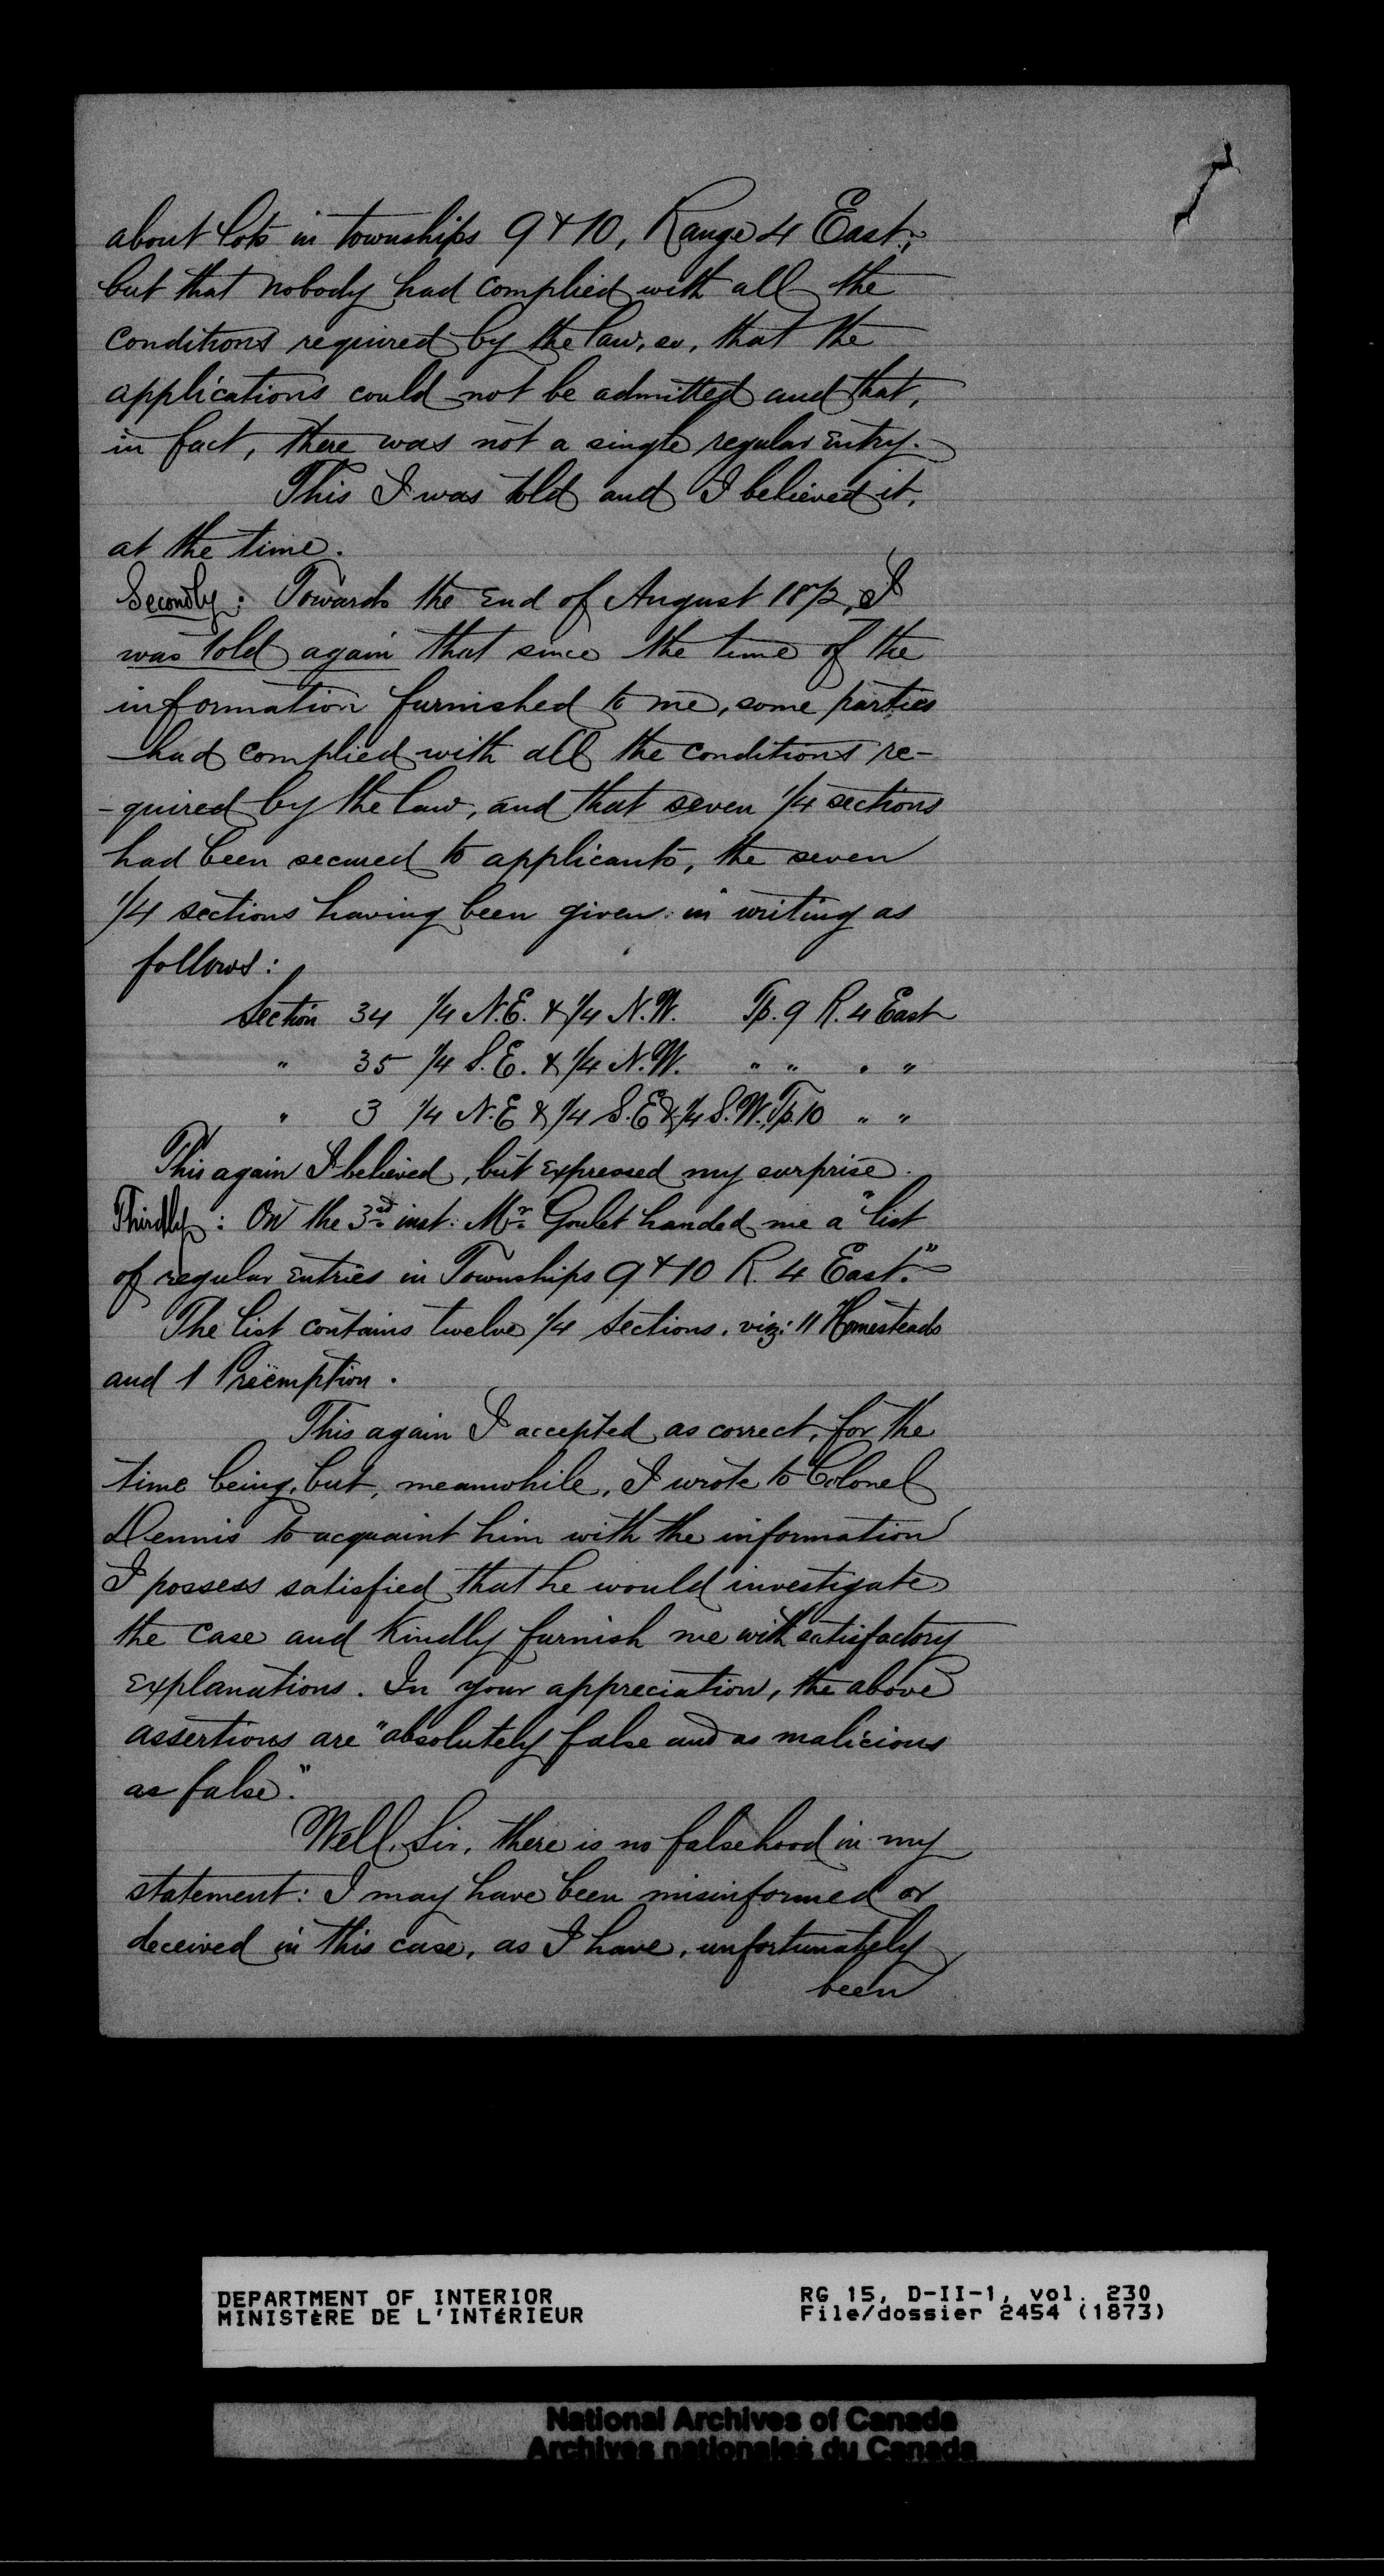 about lots in townships 9 & 10, Range 4 East;
but that nobody had complied with all the
conditions required by the law, so, that the
applications could not be admitted and that,
in fact, there was not a single regular entry.
This I was told and I believed it,
at the time.
Secondly: Towards the end of August 1872, I
was told again that since the time of the
information furnished to me, some parties
had complied with all the conditions re-
-quired by the law, and that seven 1/4 sections
had been secured to applicants, the seven
1/4 sections having been given in writing as
follows:
Section 34 1/4 N.E. & 1/4 N.W. Tp. 9 R. 4 East
" 35 1/4 S.E. & 1/4 N.W. " " " "
" 3 1/4 N.E & 1/4 S.E & 1/4 S.W. Tp. 10 " "
This again I believed, but expressed my surprise.
Thirdly: On the 3rd inst. Mr Goulet handed me a "list
of regular entries in Townships 9 & 10 R. 4 East."
The list contains twelve 1/4 sections. viz: 11 Homesteads
and 1 Preëmption.
This again I accepted as correct, for the
time being, but, meanwhile, I wrote to Colonel
Dennis to acquaint him with the information
I possess satisfied that he would investigate
the case and kindly furnish me with satisfactory
explanations. In your appreciation, the above
assertions are "absolutely false and as malicious
as false."
Well, Sir, there is no falsehood in my
statement: I may have been misinformed or
deceived in this case, as I have, unfortunately
been
DEPARTMENT OF INTERIOR RG 15, D-II-1, vol. 230
MINISTÈRE DE L'INTÉRIEUR File/dossier 2454 (1873)
National Archives of Canada
Archives nationales du Canada